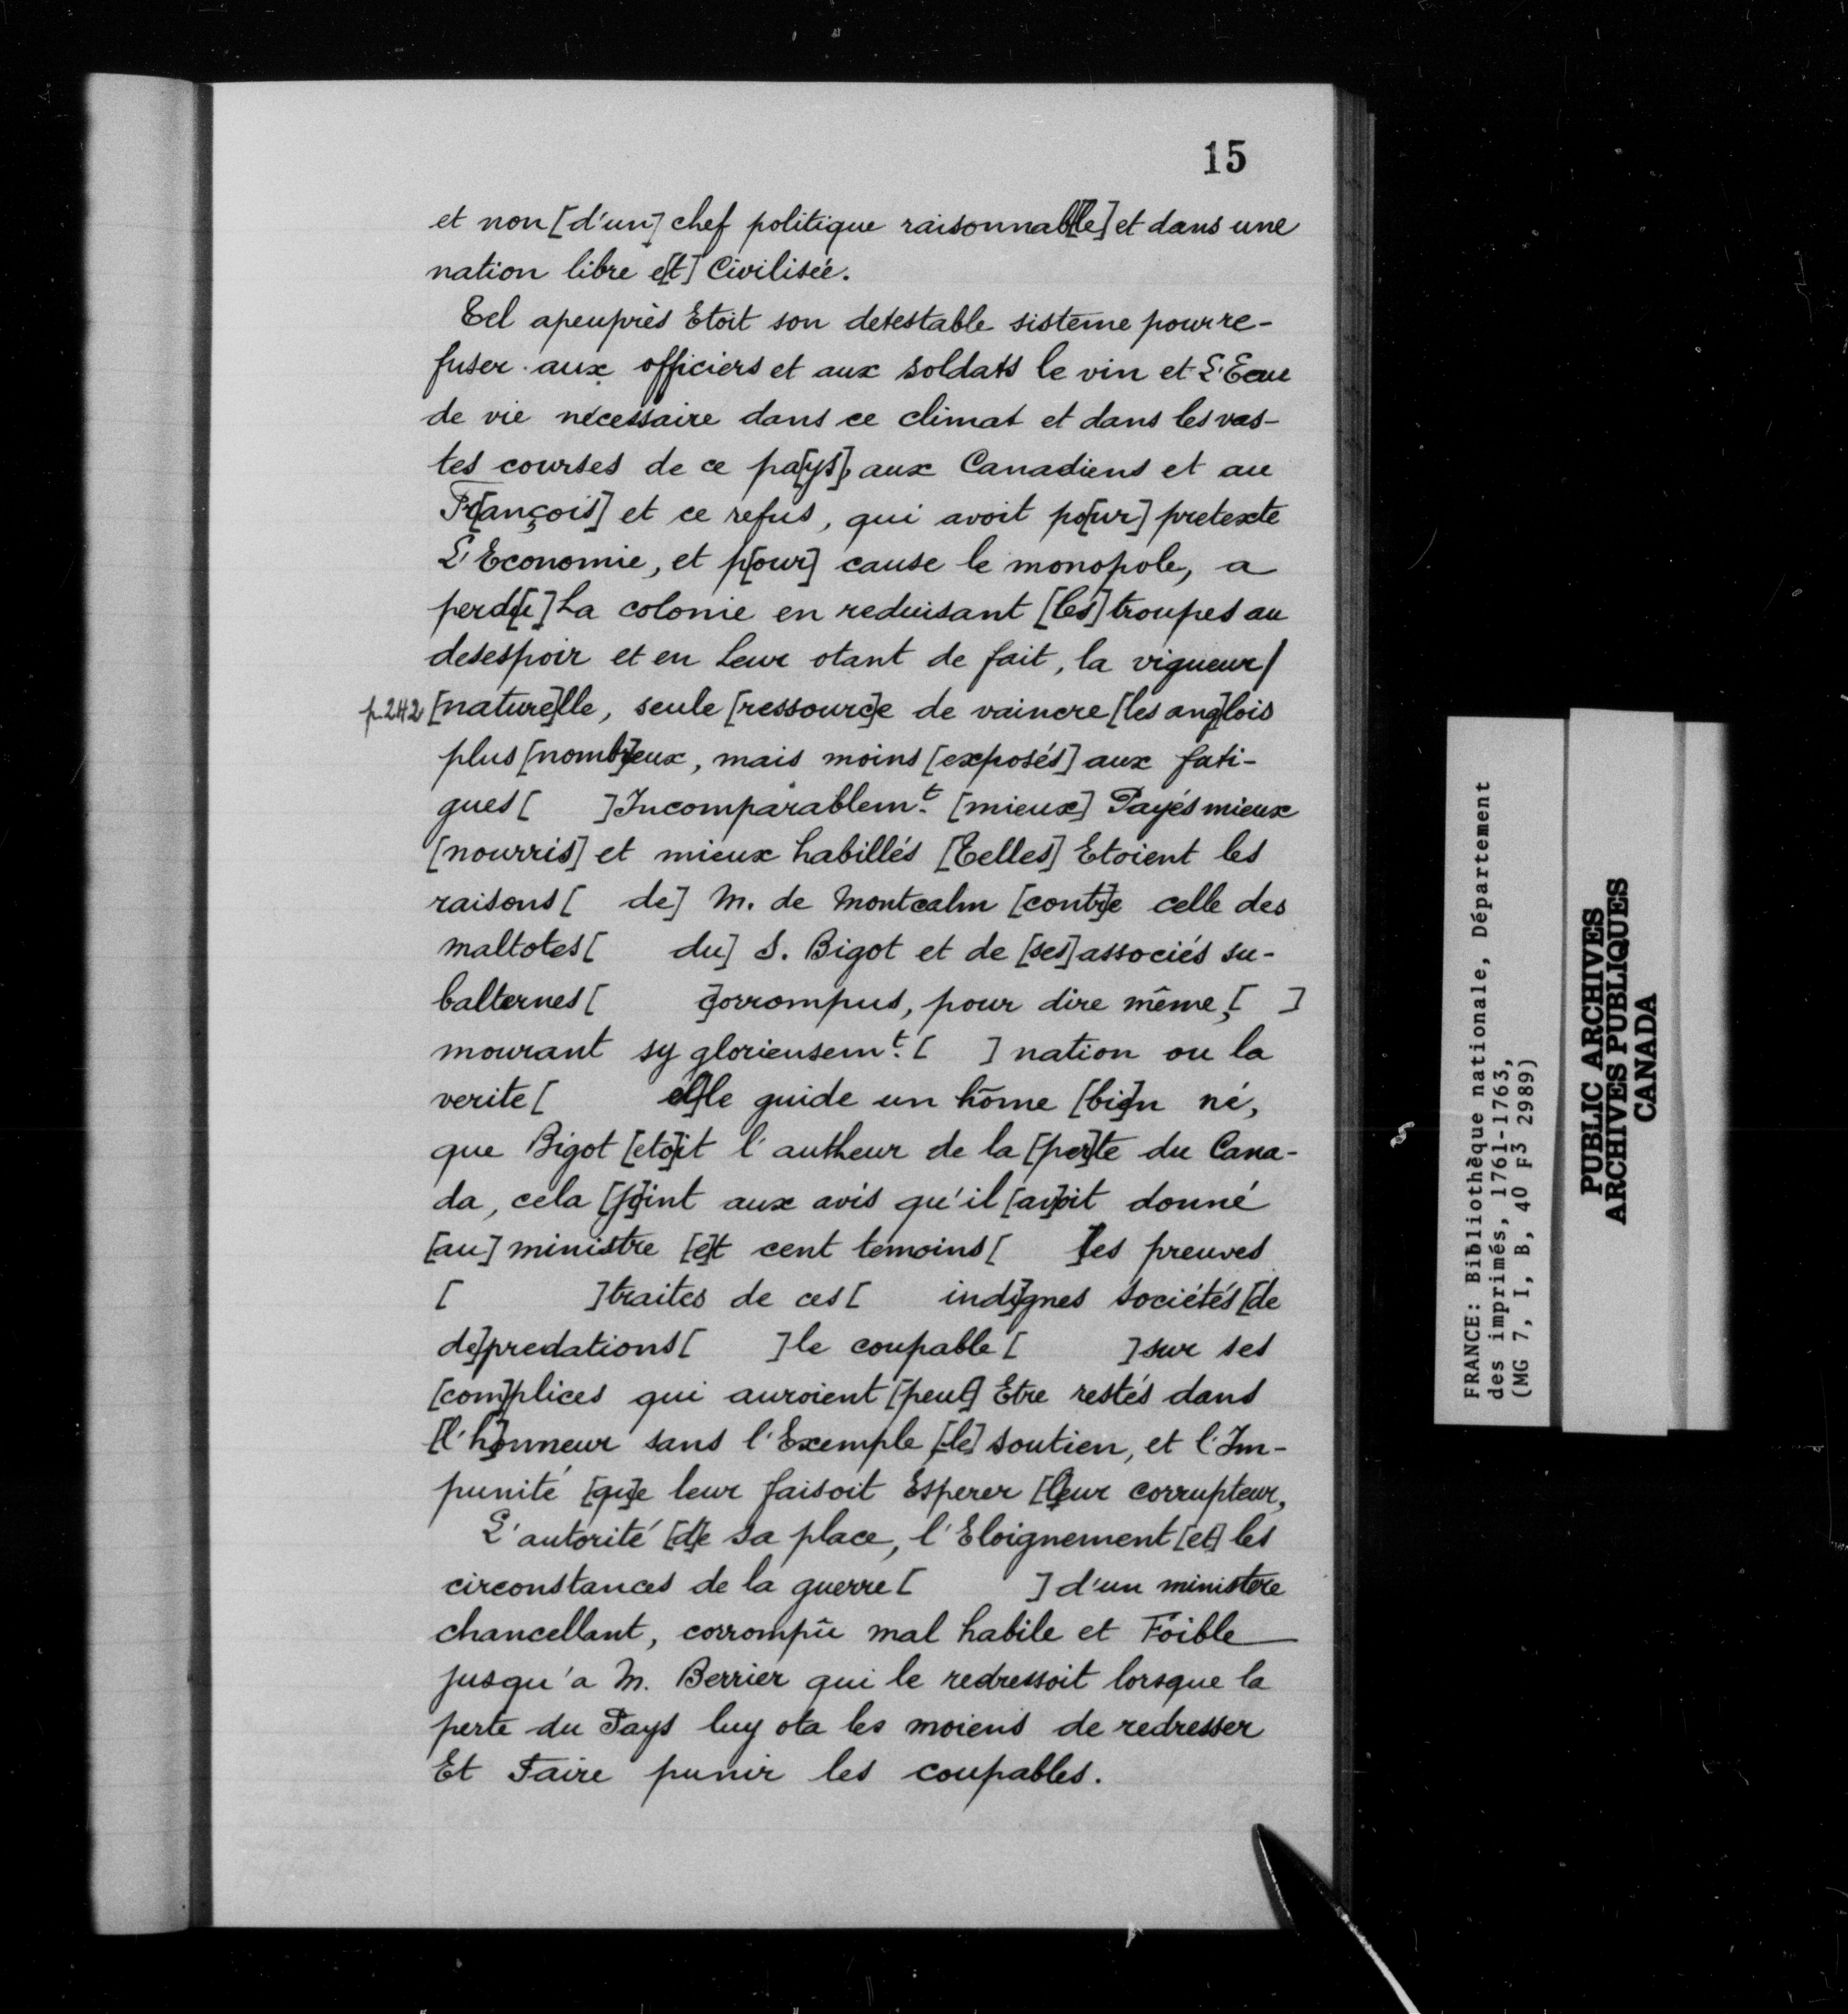 15
et non [d'un] chef politique raisonnab[le] et dans une
nation libre e[t] Civilisée.
Tel apeuprès Etoit son detestable sisteme pour re-
fuser aux officiers et aux soldats le vin et L'Eau
de vie nécessaire dans ce climat et dans les vas-
tes courses de ce pa[ys], aux Canadiens et au
Fr[ançois] et ce refus, qui avoit po[ur] pretexte
L'Economie, et p[our] cause le monopole, a
perd[u] La colonie en reduisant [les] troupes au
desespoir et en Leur otant de fait, la vigueur/
p.242 [nature]lle, seule [ressourc]e de vaincre [les ang]lois
plus [nombr]eux, mais moins [exposés] aux fati-
gues [ ] Incomparablemt. [mieux] Payés mieux
[nourris] et mieux habillés [Telles] Etoient les
raisons [ de] M. de Montcalm [contr]e celle des
maltotes [ du] S. Bigot et de [ses] associés su-
balternes [ ]corrompus, pour dire même, [ ]
mourant sy glorieusemt. [ ] nation ou la
verite [ el]le guide un hōme [bie]n né,
que Bigot [eto]it l'autheur de la [per]te du Cana-
da, cela [jo]int aux avis qu'il [av]oit donné
[au] ministre [e]t cent temoins [ ]les preuves
[ ] traites de ces [ indi]gnes sociétés [de
de]predations [ ] le coupable [ ] sur ses
[com]plices qui auroient [peut] Etre restés dans
[l'h]onneur sans l'Exemple [le] soutien, et l'Im-
punité [qu]e leur faisoit Esperer [l]eur corrupteur,
L'autorité [d]e sa place, l'Eloignement [et] les
circonstances de la guerre [ ] d'un ministere
chancellant, corrompû mal habile et Foible
jusqu'a M. Berrier qui le redressoit lorsque la
perte du Pays luy ota les moiens de redresser
Et Faire punir les coupables.
FRANCE: Bibliothèque nationale, Département
des imprimés, 1761-1763,
(MG 7, I, B, 40 F3 2989)
PUBLIC ARCHIVES
ARCHIVES PUBLIQUES
CANADA